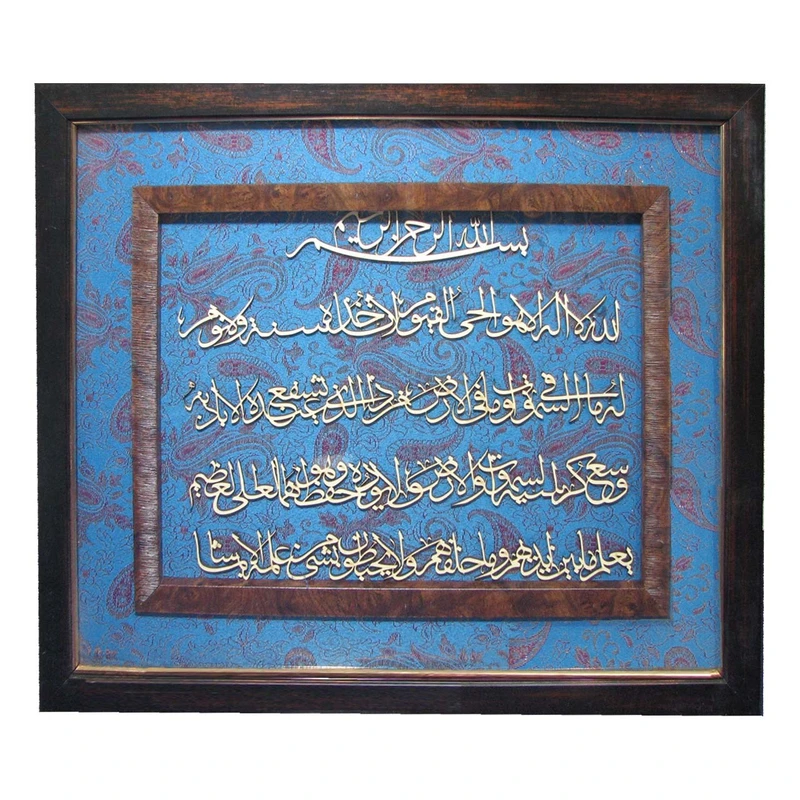 بسم الله الرحمن الرحیم
الله لا اله الا هو الحی القیوم لا تاخذه سنة ولا نوم
له ما فی السموات وما فی الارض من ذا الذی یشفع عنده الا باذنه
وسع کرسیه السموات والارض ولا یوده حفظهما وهو العلی العظیم
یعلم ما بین ایدیهم وما خلفهم ولا یحیطون بشیء من علمه الا بما شاء